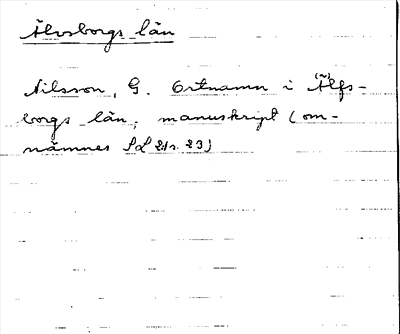 Älvsborgs län
Nilsson, G. Ortnamn i Älfs-
borgs län, manuskript (om-
nämnes SOÄ 21 s. 23)